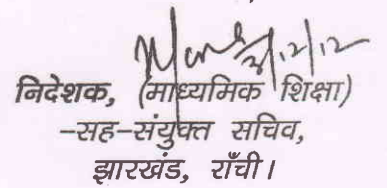 निदेशक, (माध्यमिक शिक्षा)
-सह-संयुक्त सचिव,
झारखंड, राँची।